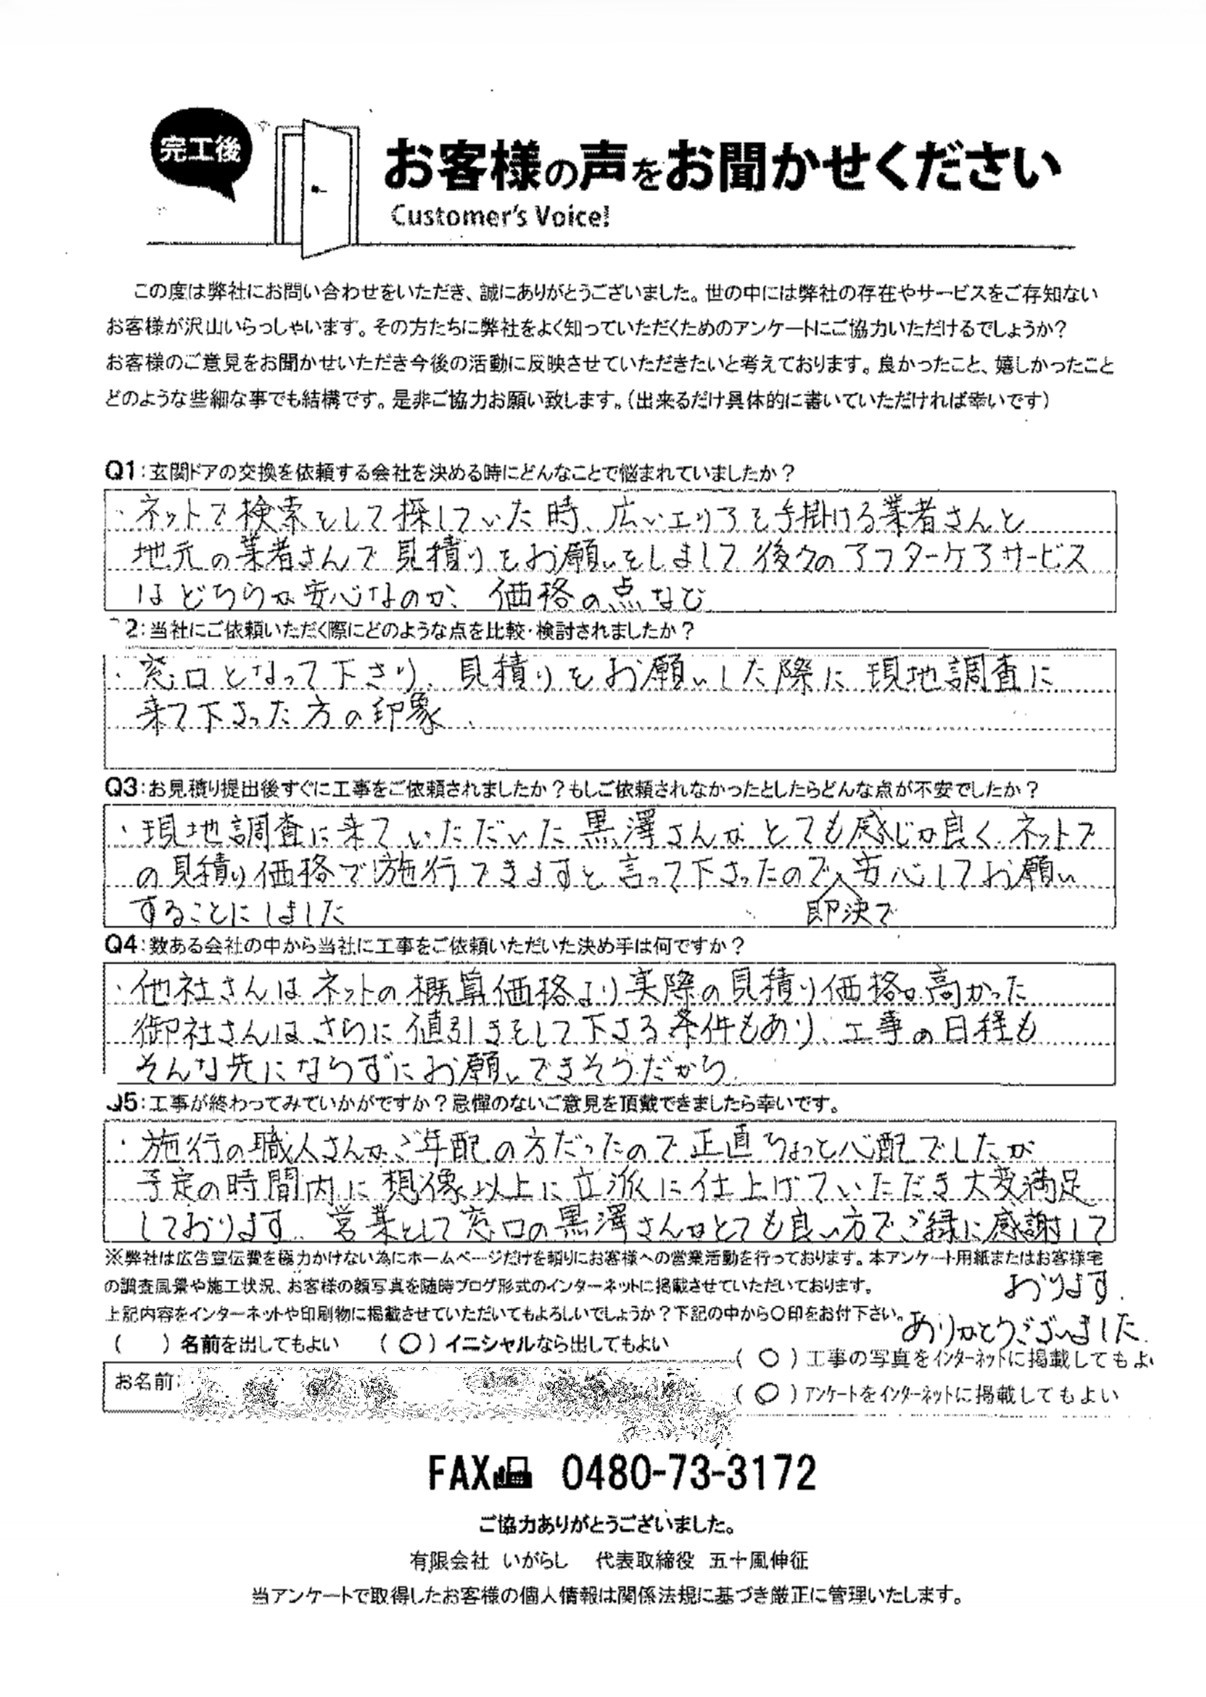 完工後
お客様の声をお聞かせください
Customer's Voice!
この度は弊社にお問い合わせをいただき、誠にありがとうございました。世の中には弊社の存在やサービスをご存知ない
お客様が沢山いらっしゃいます。その方たちに弊社をよく知っていただくためのアンケートにご協力いただけるでしょうか?
お客様のご意見をお聞かせいただき今後の活動に反映させていただきたいと考えております。良かったこと、嬉しかったこと
どのような些細な事でも結構です。是非ご協力お願い致します。(出来るだけ具体的に書いていただければ幸いです)
Q1:玄関ドアの交換を依頼する会社を決める時にどんなことで悩まれていましたか?
・ネットで検索をして探していた時、広いエリアを手掛ける業者さんと
地元の業者さんで見積りをお願いをしまして後々のアフターケアサービス
はどちらが安心なのか、価格の点など
2:当社にご依頼いただく際にどのような点を比較・検討されましたか?
・窓口となって下さり、見積りをお願いした際に現地調査に
来て下さった方の印象
Q3:お見積り提出後すぐに工事をご依頼されましたか?もしご依頼されなかったとしたらどんな点が不安でしたか?
・現地調査に来ていただいた黒澤さんがとても感じが良く、ネットで
の見積り価格で施行できますと言って下さったので安心してお願い
することにしました
即決で
Q4:数ある会社の中から当社に工事をご依頼いただいた決め手は何ですか?
・他社さんはネットの概算価格より実際の見積り価格が高かった
御社さんはさらに値引きをして下さる条件もあり、工事の日程も
そんな先にならずにお願いできそうだから
Q5:工事が終わってみていかがですか?忌憚のないご意見を頂戴できましたら幸いです。
・施行の職人さんがご年配の方だったので正直ちょっと心配でしたが
予定の時間内に想像以上に立派に仕上げていただき大変満足
しております。営業として窓口の黒澤さんがとても良い方でご縁に感謝して
おります。
ありがとうございました。
※弊社は広告宣伝費を極力かけない為にホームページだけを頼りにお客様への営業活動を行っております。本アンケート用紙またはお客様宅
の調査風景や施工状況、お客様の顔写真を随時ブログ形式のインターネットに掲載させていただいております。
上記内容をインターネットや印刷物に掲載させていただいてもよろしいでしょうか?下記の中から○印をお付下さい。
( ) 名前を出してもよい (○) イニシャルなら出してもよい
(○) 工事の写真をインターネットに掲載してもよい
(○) アンケートをインターネットに掲載してもよい
お名前:
FAX 0480-73-3172
ご協力ありがとうございました。
有限会社 いがらし 代表取締役 五十嵐伸征
当アンケートで取得したお客様の個人情報は関係法規に基づき厳正に管理いたします。